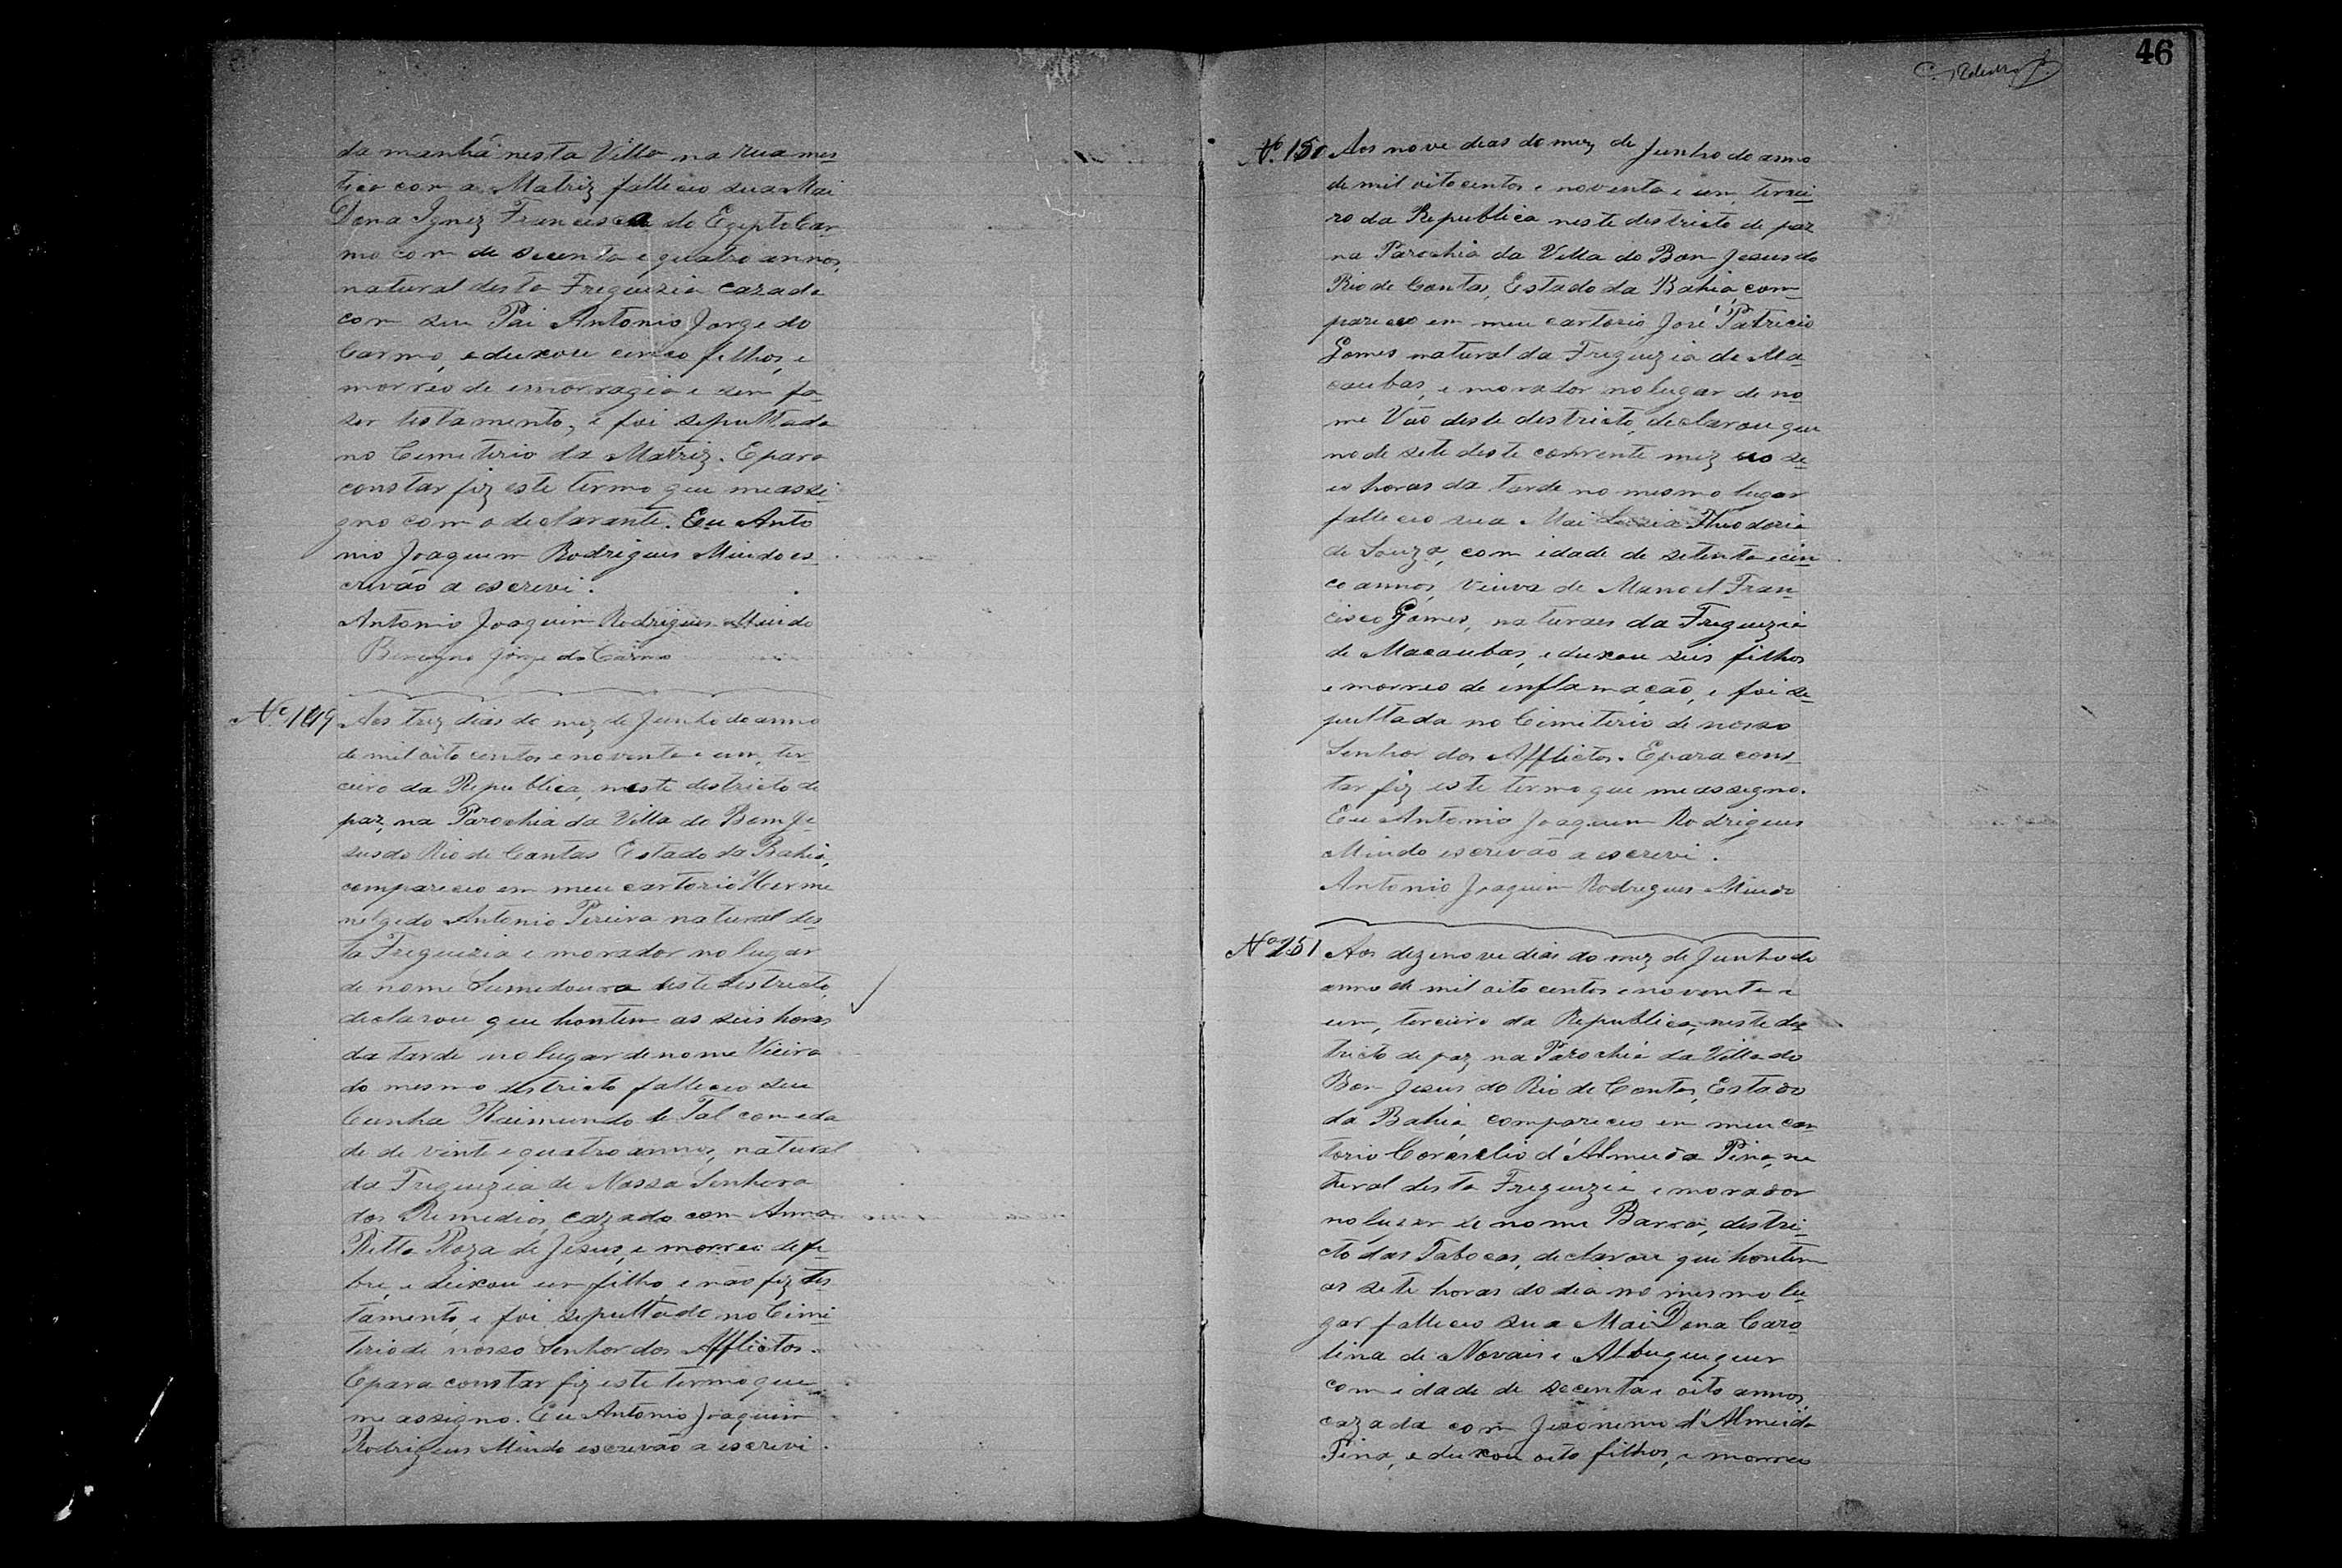 da manhã nesta Villa na rua mes
tico com a Matriz falleceo sua Mai
Dona Ignez Francisca do Egipto Car
mo com de secenta e quatro annos,
natural desta Freguezia cazada
com seu Pai Antonio Jorge do
Carmo, e deixou cinco filhos, e
morreo de emorragia e sem fa
zer testamento, e foi sepultada
no Cimiterio da Matriz. E para
constar fiz este termo que me assi
gno com o declarante. Eu Anto
nio Joaquim Rodrigues Mindo es
crivão a escrevi.
Antonio Joaquim Rodrigues Mindo
Benigno Jorge do Carmo
Nº 149 Aos trez dias do mez de Junho do anno
de mil oito centos e noventa e um, ter
ceiro da Republica, neste destricto de
paz, na Parochia da Villa do Bom Je
sus do Rio de Contas Estado da Bahia,
compareceo em meu cartorio Herme
nelgedo Antonio Pereira natural des
ta Freguezia e morador no lugar
de nome Sumedoura deste destricto,
declarou que hontem as seis horas
da tarde no lugar de nome Vieira
do mesmo destricto falleceo seu
Cunha Raimundo de Tal com eda
de de vinte e quatro annos, natural
da Freguezia de Nossa Senhora
dos Remedios, cazado com Anna
Ritta Roza de Jesus, e morreo de fe
bre, e deixou um filho, e não fez tes
tamento, e foi sepultado no Cimi
terio de nosso Senhor dos Afflictos.
E para constar fiz este termo que
me assigno. Eu Antonio Joaquim
Rodrigues Mindo escrivão a escrevi.
46
Nº 150 Aos nove dias do mez de Junho do anno
de mil oito centos e noventa e um, tercei
ro da Republica neste destricto de paz
na Parochia da Villa do Bom Jesus do
Rio de Contas, Estado da Bahia, com
pareceo em meu cartorio José Patricio
Gomes natural da Freguezia de Ma
caubas, e morador no lugar de no
me Vão deste destricto, declarou que
no de sete deste corrente mez as se
is horas da tarde no mesmo lugar
falleceo sua Mai Luzia Theodoria
de Souza, com idade de setenta e cin
co annos, viuva de Manoel Fran
cisco Gomes, naturaes da Freguezia
de Macaubas, e deixou seis filhos
e morreo de inflamação, e foi se
pultada no Cimiterio de nosso
Senhor dos Afflictos. E para cons
tar fiz este termo que me assigno.
Eu Antonio Joaquim Rodrigues
Mindo escrivão a escrevi.
Antonio Joaquim Rodrigues Mindo
Nº 151 Aos dezenove dias do mez de Junho do
anno de mil oito centos e noventa e
um, terceiro da Republica, neste des
tricto de paz na Parochia da Villa do
Bom Jesus do Rio de Contas, Estado
da Bahia compareceo em meu car
torio Cornelio d'Almeida Pina, na
tural desta Freguezia e morador
no lugar de nome Barra, destri
cto das Tabocas, declarou que hontem
as sete horas do dia no mesmo lu
gar falleceo sua Mai Dona Caro
lina de Novais e Albuquequer
com idade de secenta e oito annos,
cazada com Jeronimo d'Almeida
Pina, e deixou oito filhos, e morreo